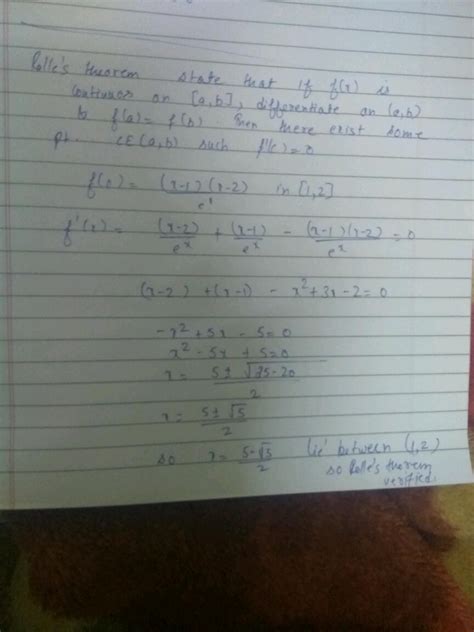 Rolle's theorem state that if f(x) is
continuos on [a,b], differentiate on (a,b)
& f(a) = f(b) then there exist some
pt. c∈(a,b) such f'(c)=0
f(x) = (x-1)(x-2)/e^x in [1,2]
f'(x) = (x-2)/e^x + (x-1)/e^x - (x-1)(x-2)/e^x = 0
(x-2) + (x-1) - x²+3x-2=0
-x²+5x-5=0
x²-5x+5=0
x = 5±√25-20/2
x = 5±√5/2
so x = 5-√5/2 lie between (1,2)
so Rolle's theorem
verified.